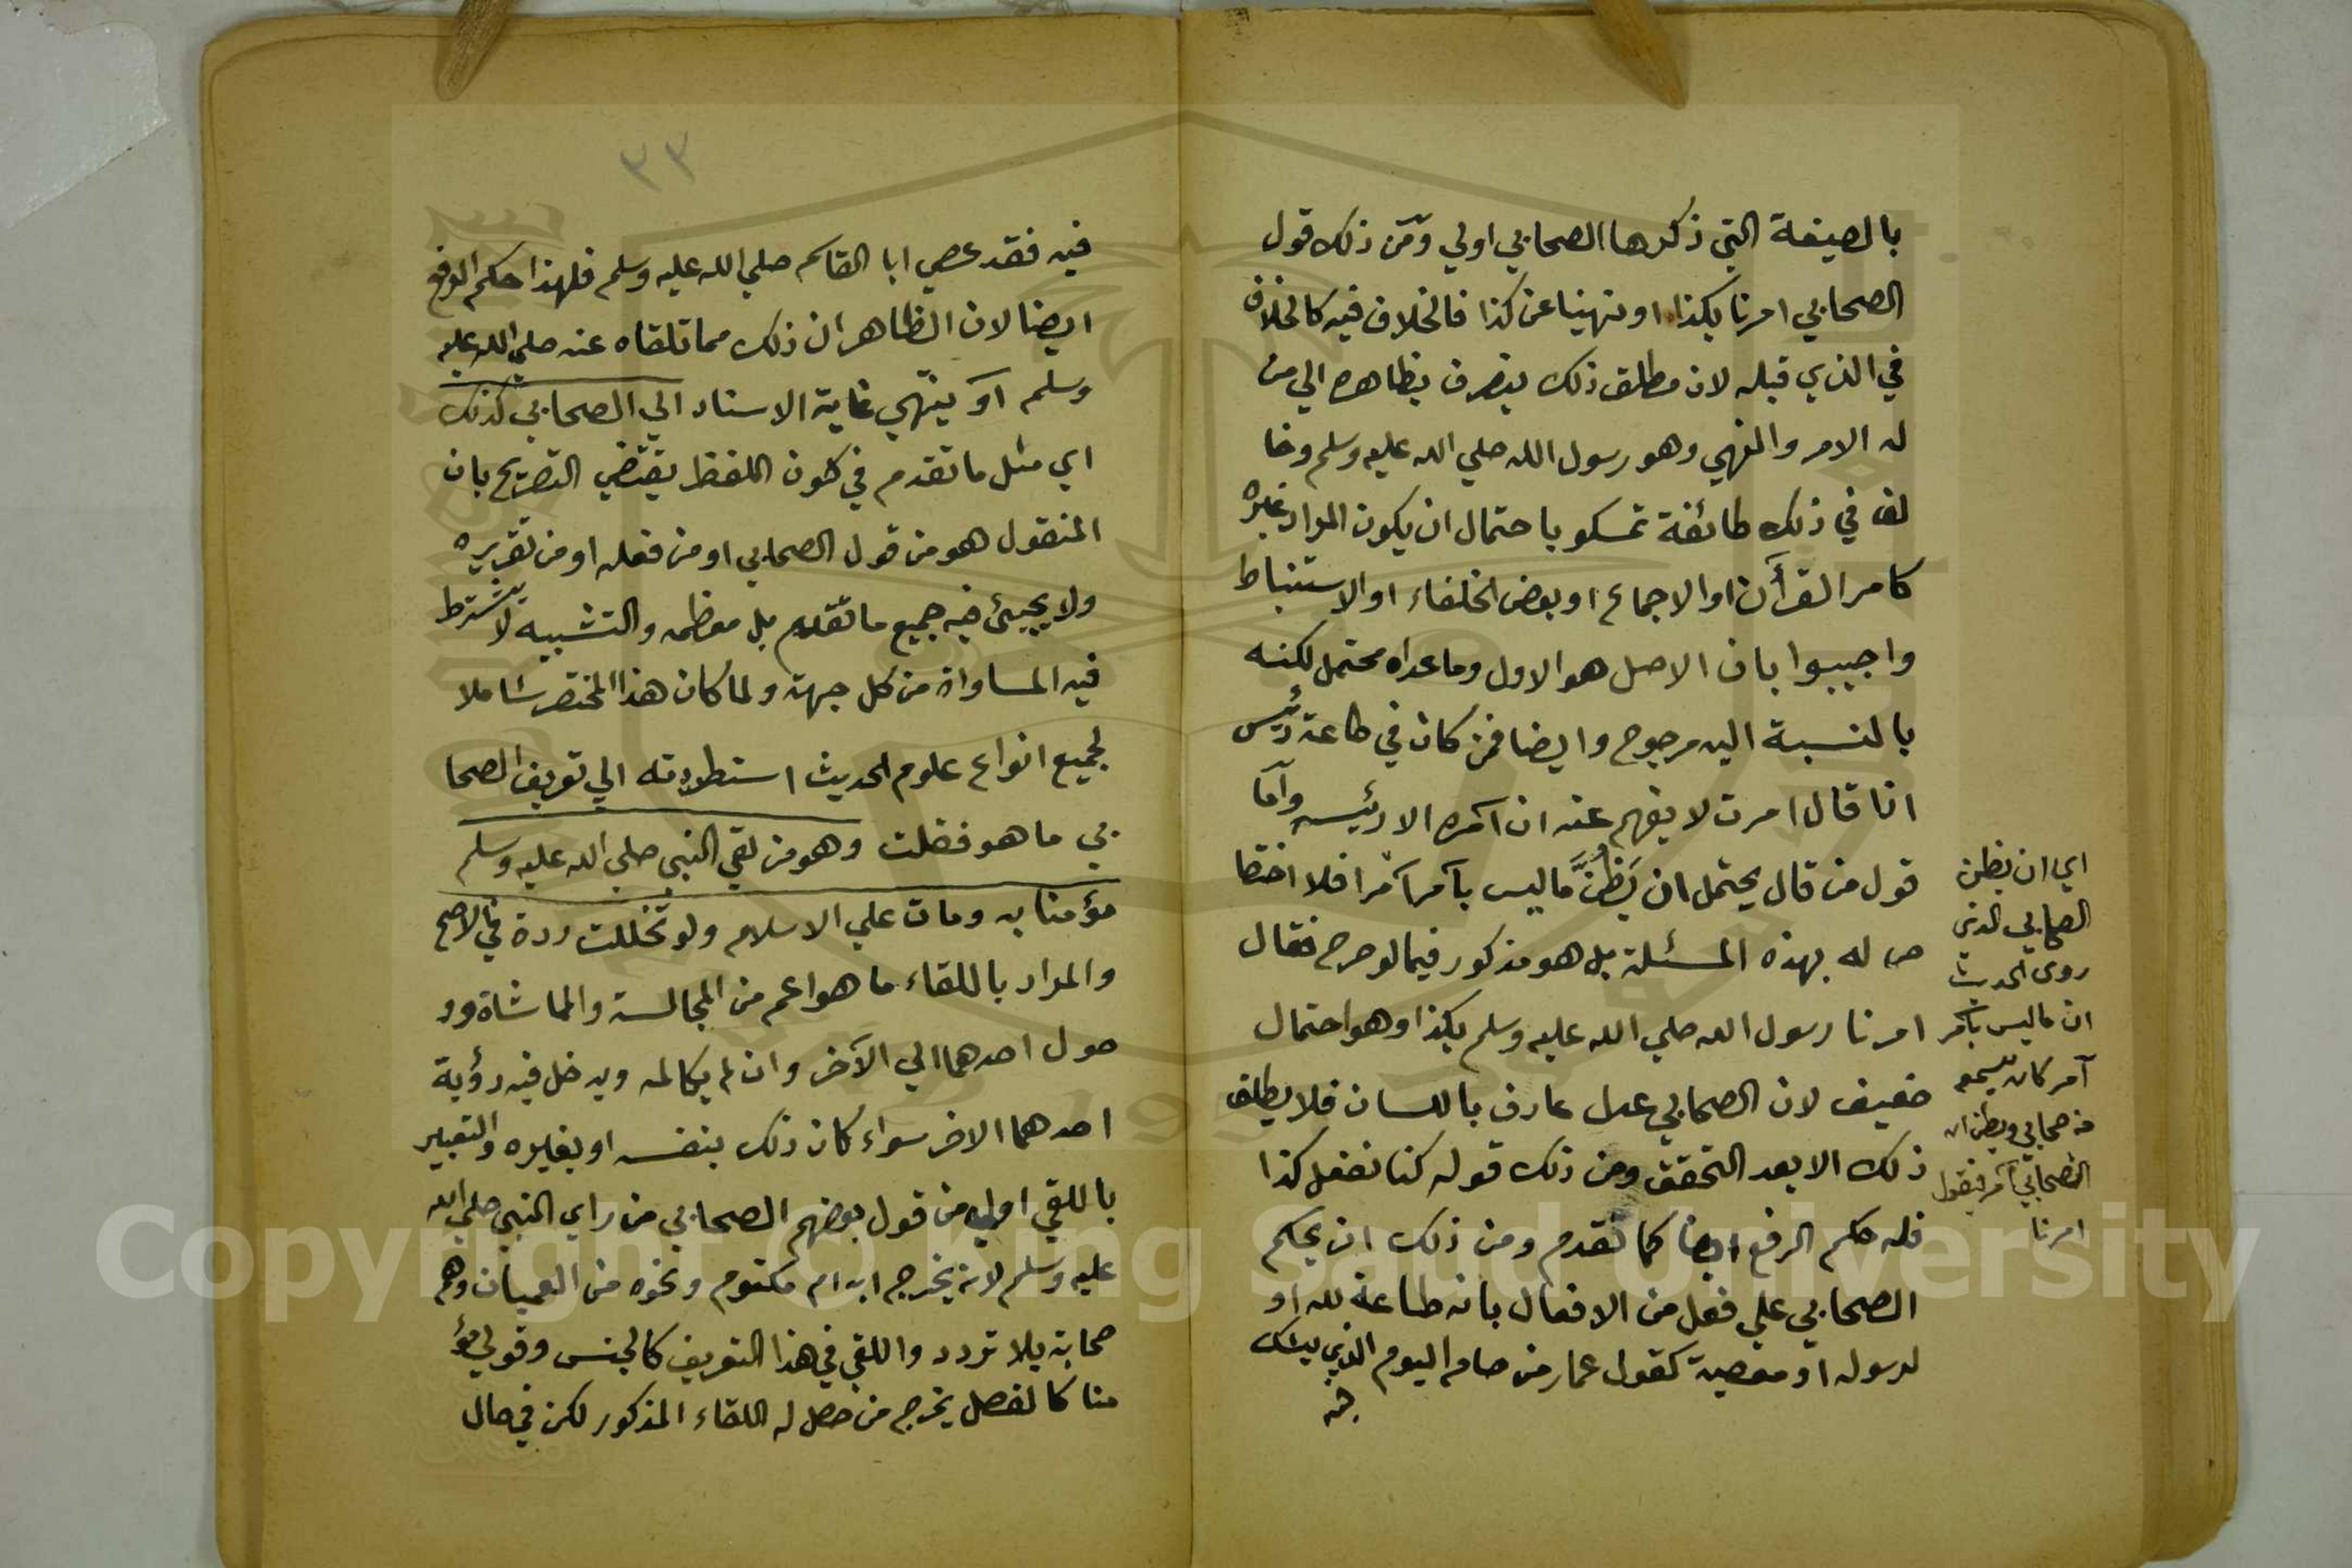 بالصيغة التي ذكرها الصحابي اولي ومن ذلك قول
الصحابي امرنا بكذا او نهينا عن كذا فالخلاف فيه كالخلاف
في الذي قبله لان مطلق ذلك ينصرف بظاهره الي من
له الامر والنهي وهو رسول الله صلي الله عليه وسلم وخا
لف في ذلك طائفة تمسكو باحتمال ان يكون المراد غيره
كامر القرآن او الاجماع او بعض الخلفاء او الاستنباط
واجيبوا بان الاصل هو الاول وما عداه محتمل لكنه
بالنسبة اليه مرجوح وايضا فمن كان في طاعة رئيس
اذا قال امرت لا يفهم عنه ان آمره الا رئيسه واما
قول من قال يحتمل ان يَظُنَّ ماليس بآمر آمرا فلا اختصا
ص له بهذه المسئلة بل هو مذكور فيما لو صرح فقال
امرنا رسول الله صلي الله عليه وسلم بكذا وهو احتمال
ضعيف لان الصحابي عدل عارف باللسان فلا يطلق
ذلك الا بعد التحقق ومن ذلك قوله كنا نفعل كذا
فله حكم الرفع ايضا كما تقدم ومن ذلك ان يحكم
الصحابي علي فعل من الافعال بانه طاعة لله او
لرسوله او معصية كقول عمار من صام اليوم الذي يشك
فيه
اي ان يظن
الصحابي الذي
روى الحديث
ان ماليس بآمر
آمر كان يسمع
من صحابي ويظن ان
الصحابي آمر فيقول
امرنا
٣٣
فيه فقد عصي ابا القاسم صلي الله عليه وسلم فلهذا حكم الرفع
ايضا لان الظاهر ان ذلك مما تلقاه عنه صلي الله عليه
وسلم او ينتهي غاية الاسناد الي الصحابي كذلك
اي مثل ما تقدم في كون اللفظ يقتضي التصريح بان
المنقول هو من قول الصحابي او من فعله او من تقريره
ولا يجيئ فيه جميع ما تقدم بل معظمه والتشبيه لا يشترط
فيه المساواة من كل جهة ولما كان هذا المختصر شاملا
لجميع انواع علوم الحديث استطردته الي تعريف الصحا
بي ما هو فقلت وهو من لقي النبي صلي الله عليه وسلم
مؤمنا به ومات علي الاسلام ولو تخللت ردة في الاصح
والمراد باللقاء ما هو اعم من المجالسة والماشاة وو
صول احدهما الي الآخر وان لم يكالمه ويدخل فيه رؤية
احدهما الاخر سواء كان ذلك بنفسه او بغيره والتعبير
باللقي اولي من قول بعضهم الصحابي من راي النبي صلي الله
عليه وسلم لانه يخرج ابن ام مكتوم ونحوه من العميان وهم
صحابة بلا تردد واللقي في هذا التعريف كالجنس وقولي مؤ
منا كالفصل يخرج من حصل له اللقاء المذكور لكن في حال
Copyright © King Saud University